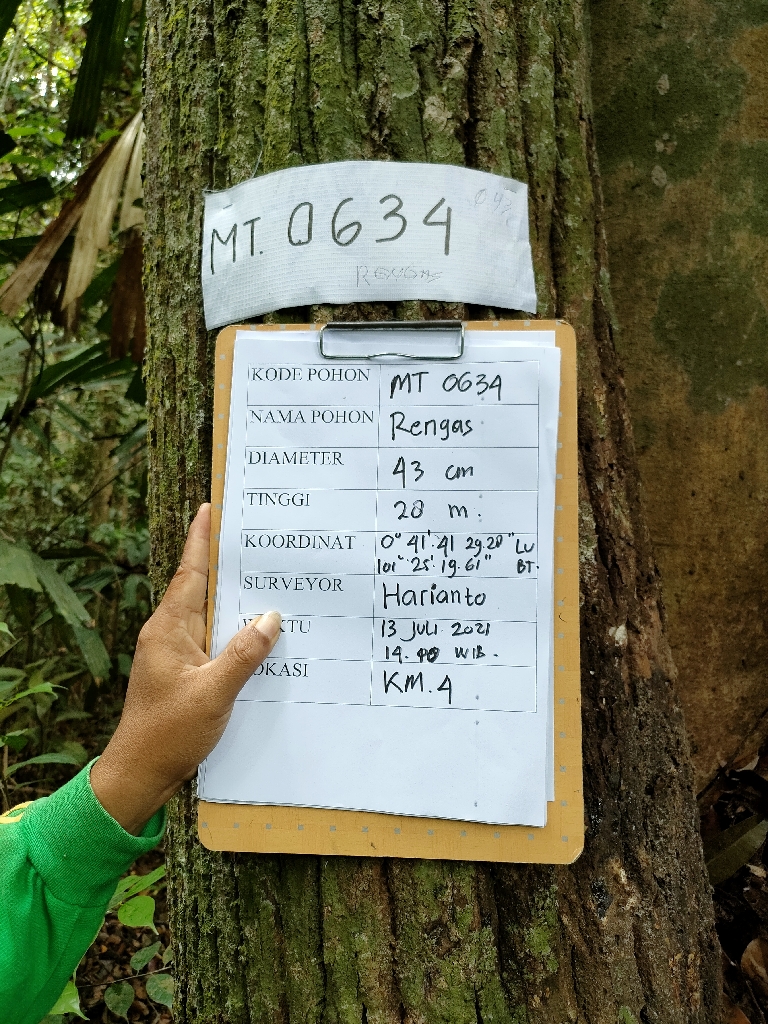 MT. 0634
Rengas
KODE POHON MT 0634
NAMA POHON Rengas
DIAMETER 43 cm
TINGGI 20 m.
KOORDINAT 0° 41' 41 29.20" LU
101° 25' 19.61" BT.
SURVEYOR Harianto
WAKTU 13 JULI 2021
14. WIB.
LOKASI KM. 4